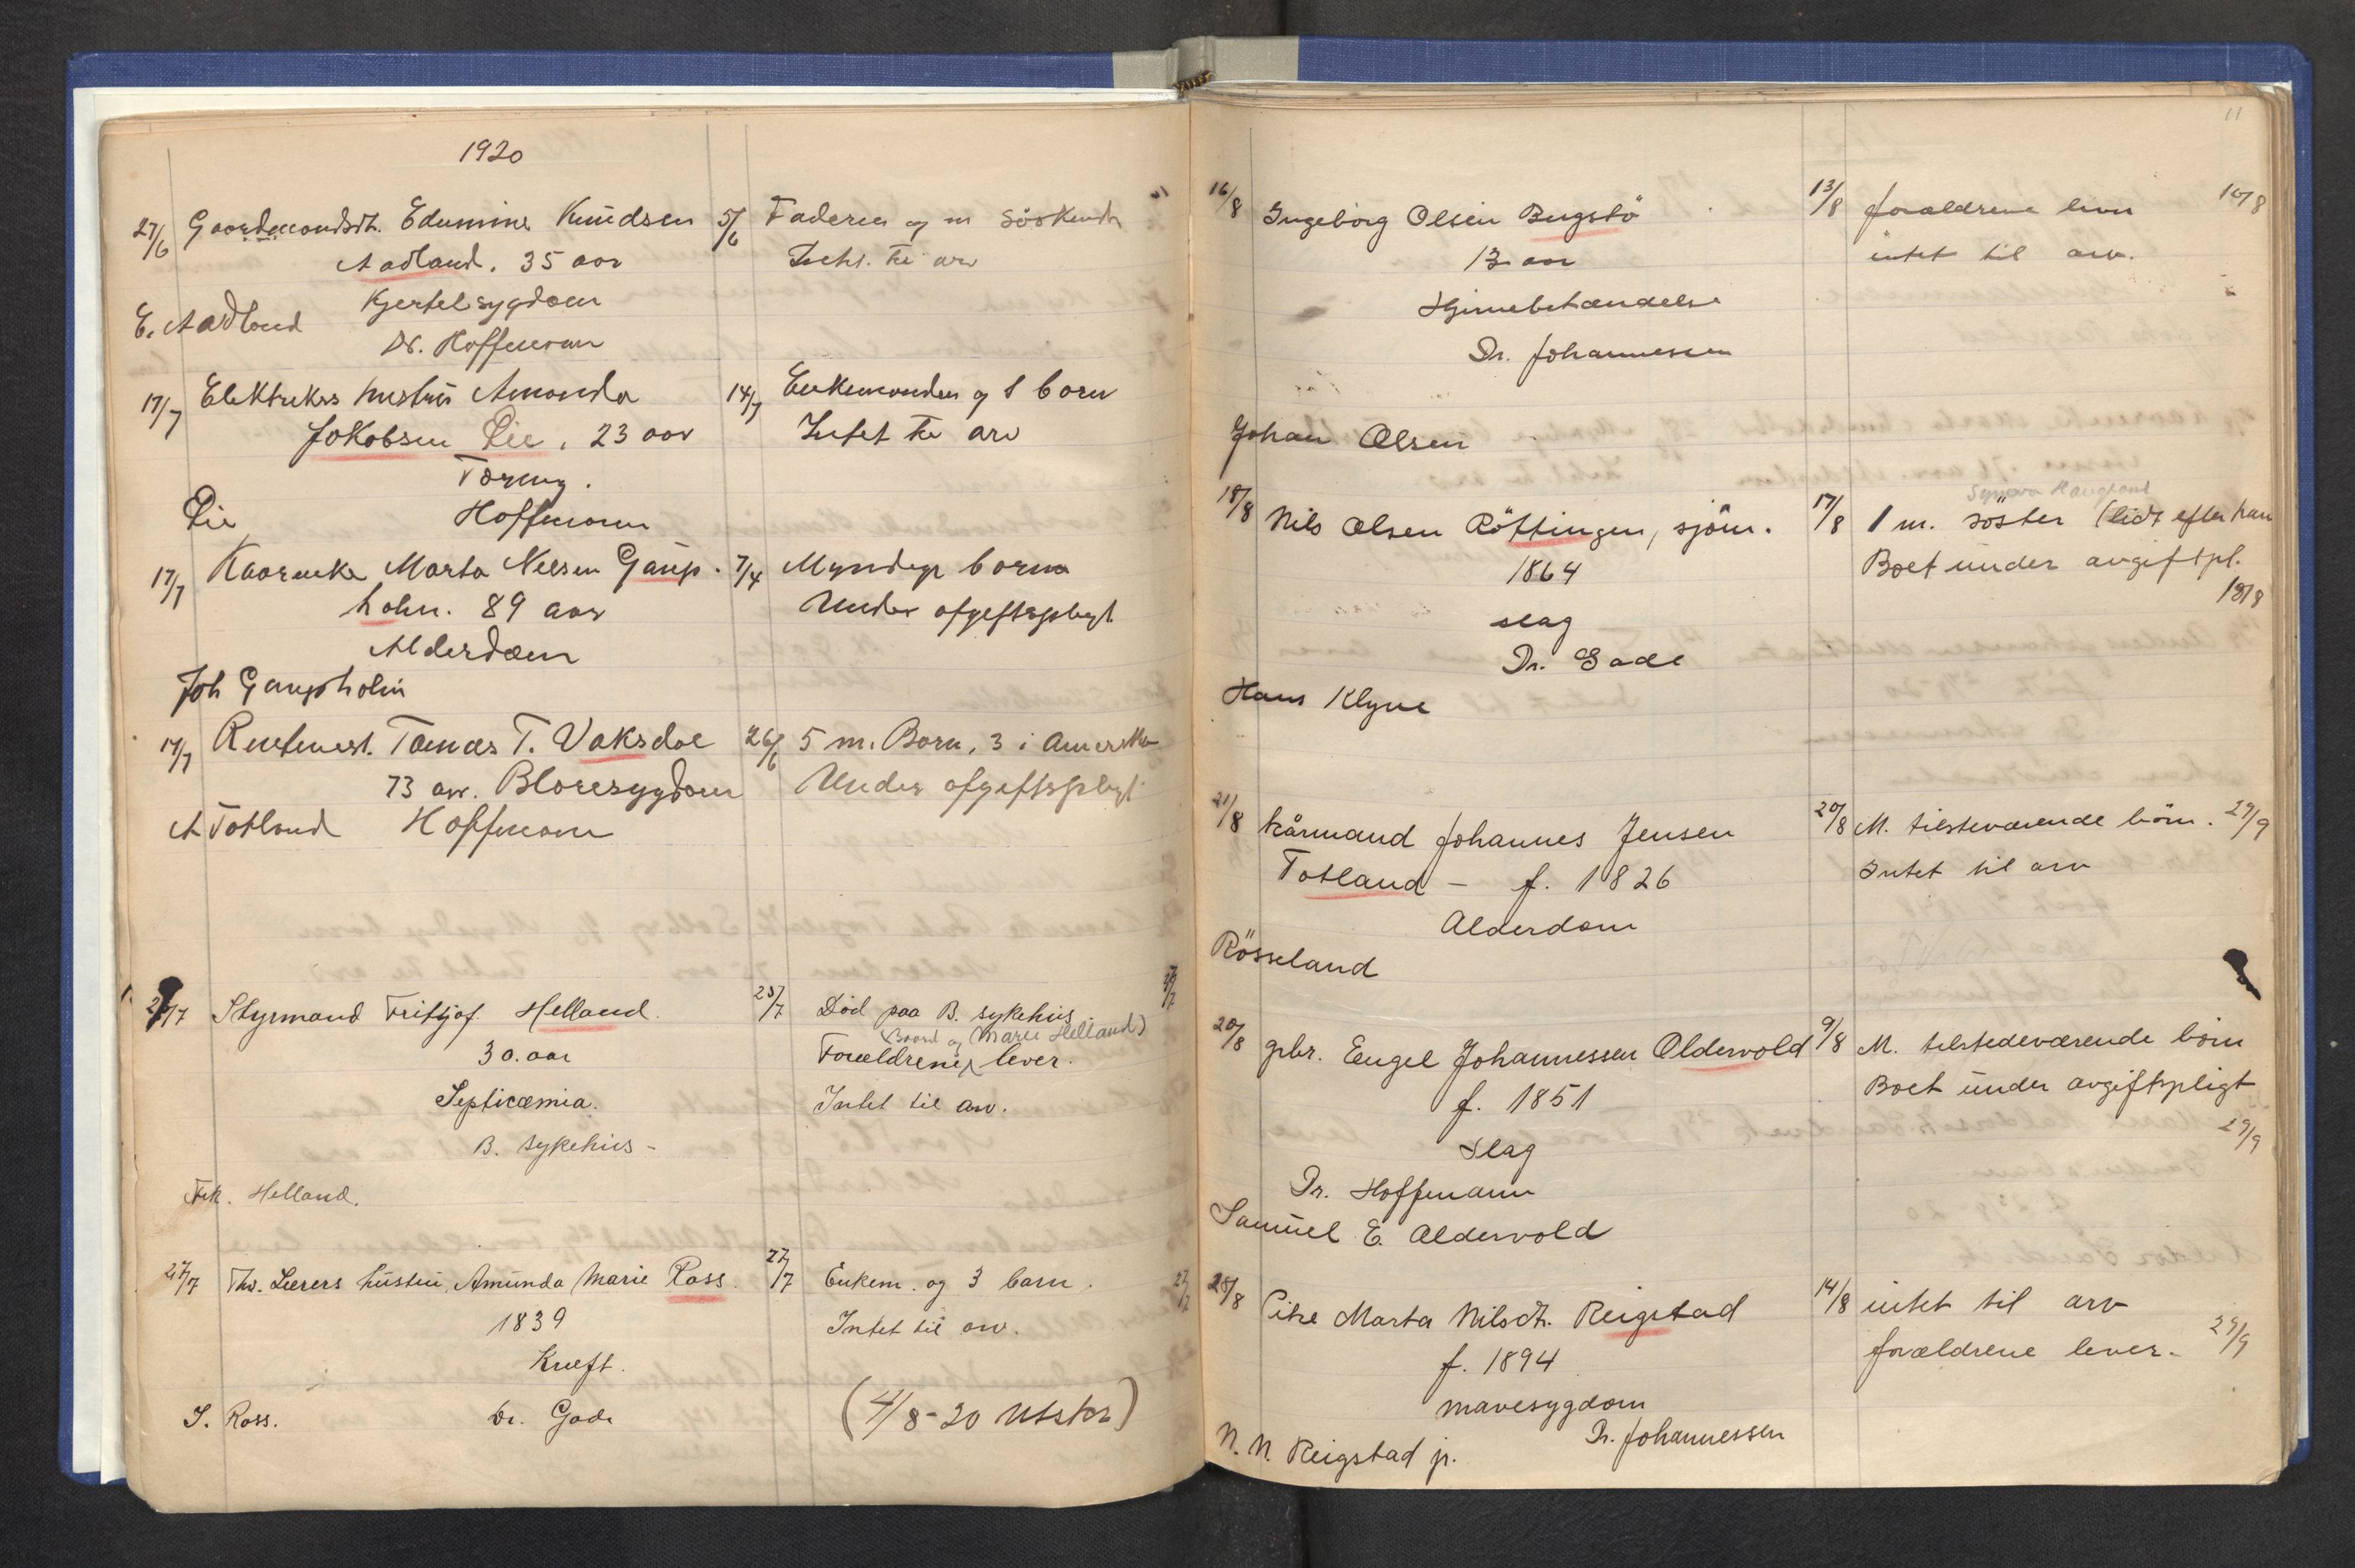 1920
27/6 Gaardmandsdt. Edumine Knudsen 5/6 Faderen og m Söskende
Aadland. 35 aar
Intet til arv
Kjertelsygdom
E. Aadland
Dr. Hoffmann
17/7 Elektrikers hustru Amanda 14/7 Enkemanden og 1 barn
Jakobsen Lie. 23 aar Intet til arv
Tæring.
Lie Hoffmann
17/7 Kaarenke Marta Nilsen Gaup- 7/4 Myndige born
holm. 89 aar Under afgiftspligt
Alderdom
Joh Gaupholm
17/7 Rentenist. Tomas T. Vaksdal 26/6 5 m. Born, 3 i Amerika
73 aar. Blæresygdom Under afgiftspligt
A Totland Hoffmann
27/7 Styrmand Fritjof Helland. 25/7 Död paa B. sykehus
(Baard og Marie Helland)
30. aar Forældrene lever.
Septicæmia. Intet til arv.
B. sykehus -
Frk. Helland.
27/7 Thv. Leerers hustru, Amunda Marie Ross. 27/7 Enkem. og 3 barn. 27/7
1839 Intet til arv.
Kræft.
S. Ross. Dr. Gade (4/8-20 Utskr)
11
16/8 Ingeborg Olsen Bugstö 13/8 forældrene lever 16/8
13 aar intet til arv.
Hjernebetændelse
Dr. Johannessen
Johan Olsen
Synneva Haugland
18/8 Nils Olsen Röttingen, sjöm. 17/8 1 m. söster (lidt efter ham
1864 Boet under avgiftpl.
18/8
slag
Dr. Gade
Hans Klyve
21/8 kårmand Johannes Jensen 20/8 M. tilsteværende börn. 29/9
Totland - f. 1826 Intet til arv
Alderdom
Rösseland
20/8 gbr. Engel Johannessen Oldervold 9/8 M. tilstedeværende börn
f. 1851 Boet under avgiftspligt
29/9
Slag
Dr. Hoffmann
Samuel E. Aldervold
28/8 Pike Marta Nilsdt. Reigstad 14/8 intet til arv
f. 1894 forældrene lever. 29/9
mavesygdom
Dr. Johannessen
N. N. Reigstad jr.